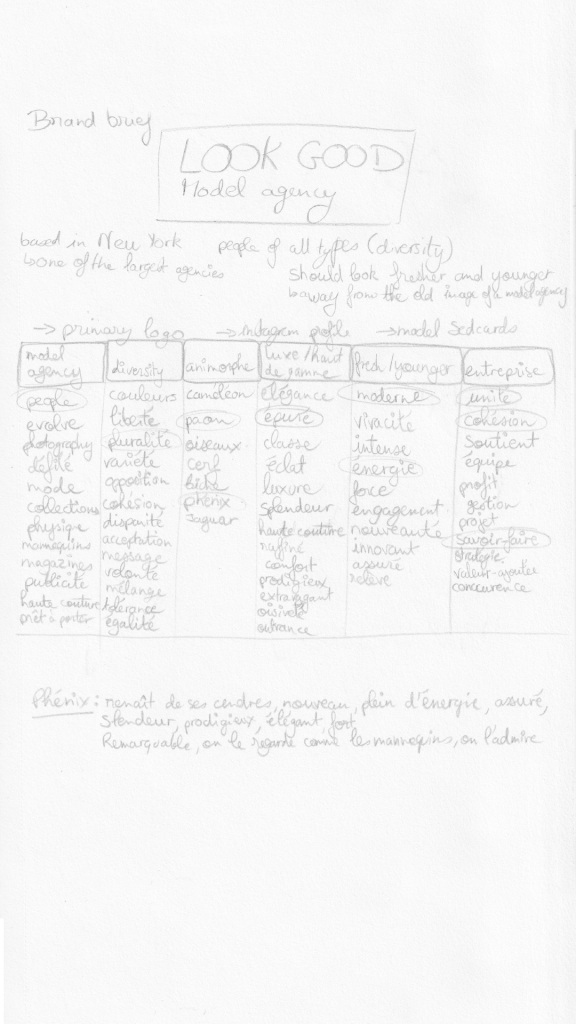 Brand brief
LOOK GOOD
Model agency
based in New York
↳ one of the largest agencies
people of all types (diversity)
should look fresher and younger
↳ away from the old image of a model agency
→ primary logo → Instagram profile → model sedcards
model agency
people
evolve
photography
défilé
mode
collections
physique
mannequins
magazines
publicité
haute couture
prêt à porter
diversity
couleurs
liberté
pluralité
variété
opposition
cohésion
disparité
acceptation
message
volonté
mélange
tolérance
égalité
animorphe
caméléon
paon
oiseaux
cerf
biche
phénix
jaguar
luxe/haut
de gamme
élégance
épuré
classe
éclat
luxure
splendeur
haute couture
raffiné
confort
prodigieux
extravagant
oisiveté
outrance
fresh/younger
moderne
vivacité
intense
énergie
force
engagement
nouveauté
innovant
assuré
relève
entreprise
unité
cohésion
soutient
équipe
profit
gestion
projet
savoir-faire
stratégie
valeur-ajoutée
concurence
Phénix : renaît de ses cendres, nouveau, plein d'énergie, assuré,
splendeur, prodigieux, élégant fort
Remarquable, on le regarde comme les mannequins, on l'admire